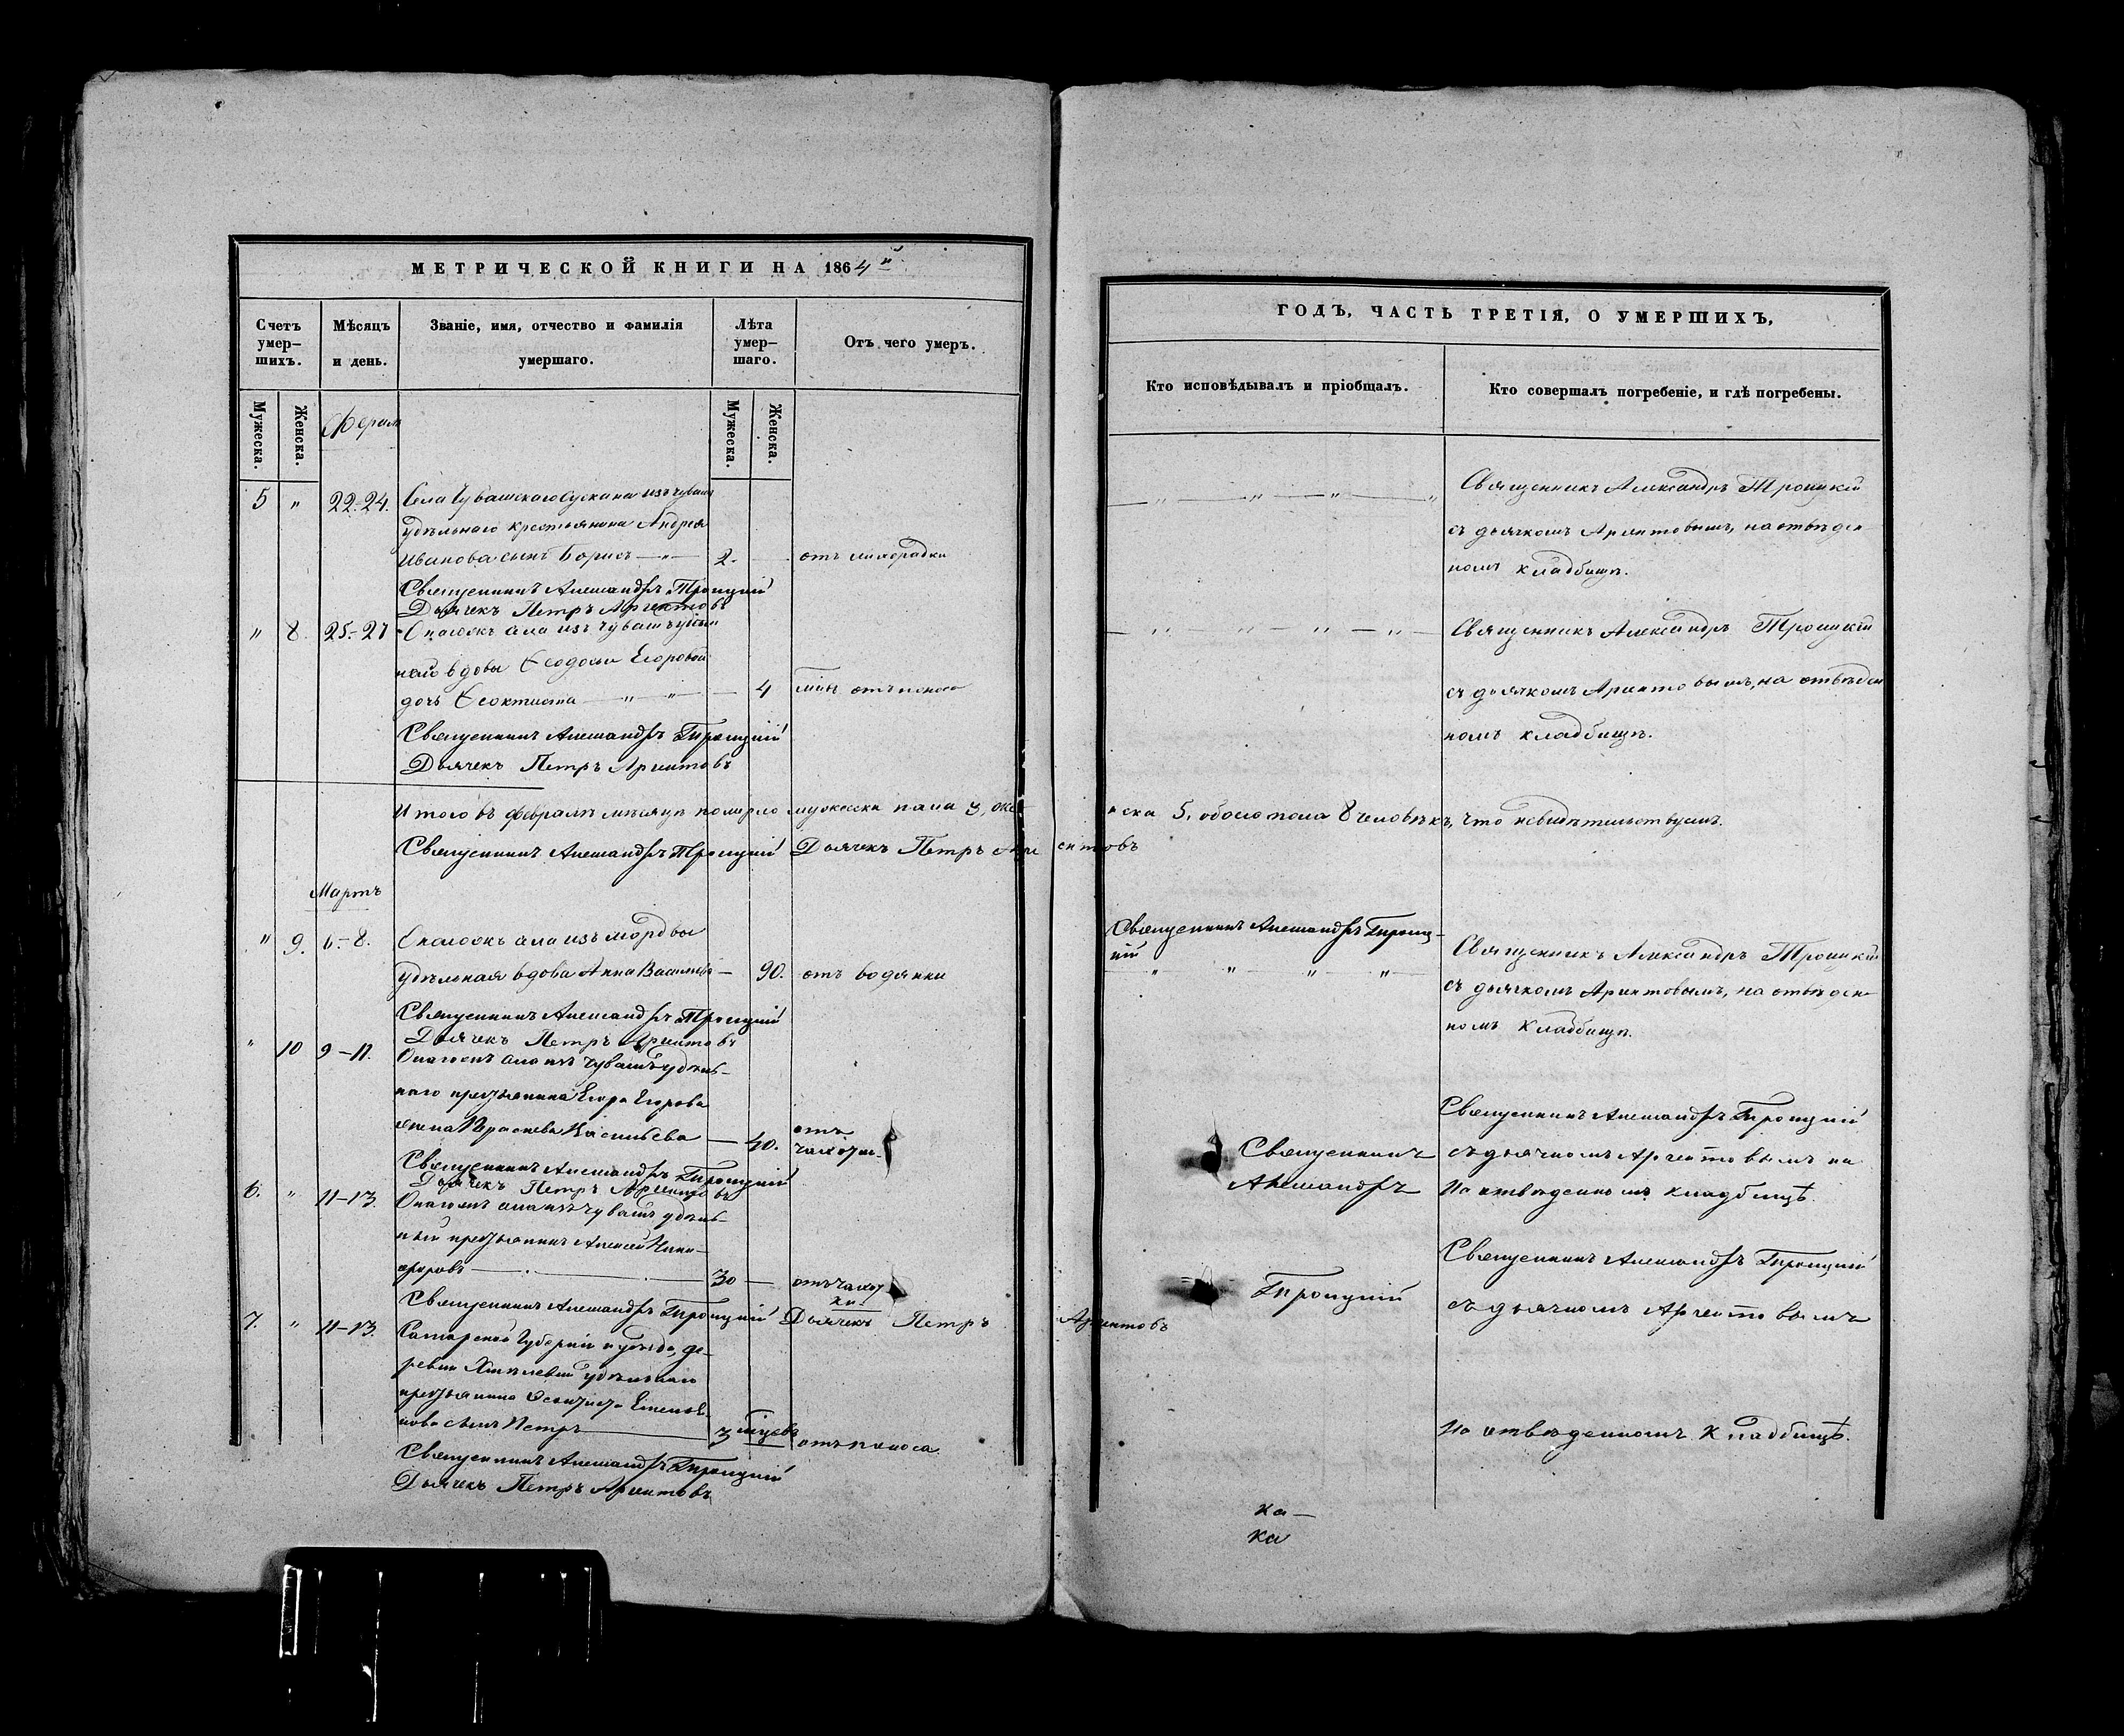 МЕТРИЧЕСКОЙ КНИГИ НА 1864й
Счетъ умер-шихъ.
Мѣсяцъ и день.
Званіе, имя, отчество и фамилія умершаго.
Лѣта умер-шаго.
Отъ чего умеръ.
Мужеска.
Женска.
Мужеска.
Женска.
5 " 22-24. Села Чувашскаго Сускана изъ чувашъ
удѣльнаго крестьянина Андрея
Иванова сынъ Борисъ 2. отъ лихорадки
Священникъ Александръ Троицкій
Дьячекъ Петръ Арнтовъ
" 8. 25-27 Онагожъ села изъ чувашъ удѣль
наго вдовы Ѳеодосьи Егоровой
дочь Ѳеоктиста 4 отъ поноса
Священникъ Александръ Троицкій
Дьячекъ Петръ
Итого въ февралѣ мѣсяцѣ померло мужеска пола 3, жен
Священникъ Александръ Троицкій Дьячекъ Петръ
Мартъ
" 9. 6-8. Онагожъ села изъ мордвы
удѣльная вдова Анна Васильева 90. отъ водянки
Священникъ Александръ Троицкій
Дьячекъ Петръ
" 10 9-11. Онагожъ села изъ чувашъ удѣль-
наго крестьянина Егора Егорова
жена 40. отъ чахотки
Священникъ Александръ Троицкій
Дьячекъ Петръ
6. " 11-13. Онагожъ села изъ чувашъ удѣль-
ный крестьянинъ Алексей Ники-
форовъ 30 отъ чахот
ки
Священникъ Александръ Троицкій Дьячекъ Петръ
7. " 11-13. Самарской Губерніи и уѣзда, де-
ревни удѣльнаго
крестьянина Ѳеоктиста Емелья-
нова сынъ Петръ 3 мѣсяц отъ поноса
Священникъ Александръ Троицкій
Дьячекъ Петръ
ГОДЪ, ЧАСТЬ ТРЕТІЯ, О УМЕРШИХЪ,
Кто исповѣдывалъ и пріобщалъ.
Кто совершалъ погребеніе, и гдѣ погребены.
Священникъ Александръ Троицкій
съ дьячкомъ, на отвѣден
номъ кладбищѣ.
Священникъ Александръ Троицкій
съ дьячкомъ, на отвѣден
номъ кладбищѣ.
ска 5, обоего пола 8 человѣкъ, что свидѣтельствуемъ.
Священникъ Александръ Троиц-
кій
Священникъ Александръ Троицкій
съ дьячкомъ, на отвѣден-
номъ кладбищѣ.
Священникъ
Александръ
Троицкій
Священникъ Александръ Троицкій
съ дьячкомъ на
на отвѣденномъ кладбищѣ.
Священникъ Александръ Троицкій
съ дьячкомъ
на отвѣденномъ кладбищѣ.
ка-
ка